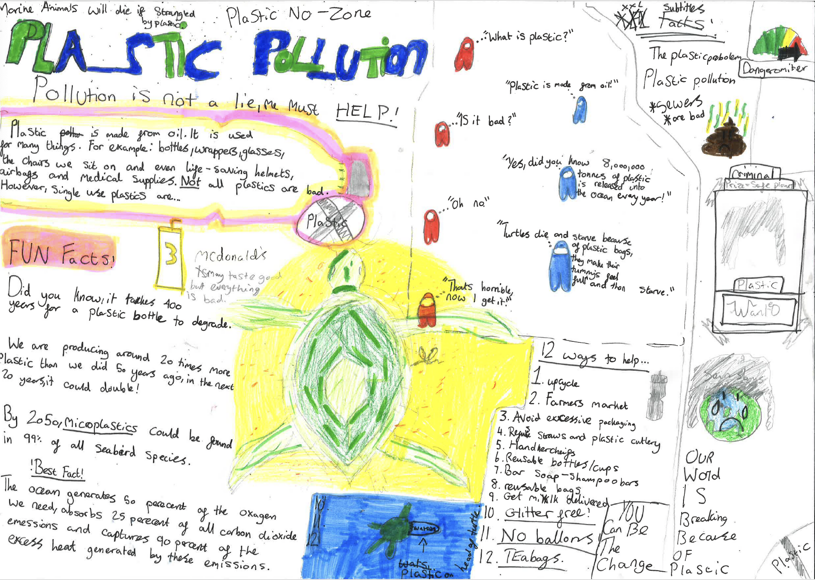 Marine Animals will die if Strangled
by plastic
Plastic No-Zone
PLASTIC POLLUTION
Pollution is not a lie, me must HELP!
Plastic is made from oil. It is used
for many things. For example: bottles, wrappers, glasses,
the chairs we sit on and even life-saving helmets,
airbags and Medical Supplies. Not all plastics are bad.
However, Single use plastics are...
Plastic
FUN Facts!
3
McDonald's
may taste good
but everything
is bad.
Did you know, it takes 400
years for a plastic bottle to degrade.
We are producing around 20 times more
Plastic than we did 50 years ago, in the next
20 years, it could double!
By 2050, Microplastics could be found
in 99% of all Seabird species.
!Best Fact!
The ocean generates 50 percent of the oxagen
we need, absorbs 25 percent of all carbon dioxide
emessions and captures 90 percent of the
excess heat generated by these emissions.
"What is plastic?"
"Plastic is made from oil!"
"Is it bad?"
"Yes, did you know 8,000,000
tonnes of plastic
is released into
the ocean every year!"
"Oh no"
"Turtles die and starve because
of plastic bags,
they make their
tummys feel
full and then starve."
"Thats horrible,
now I get it!"
12 ways to help...
1. upcycle
2. Farmers market
3. Avoid excessive packaging
4. straws and plastic cutlery
5. Handkercheifs
6. Reusable bottles/cups
7. Bar Soap-Shampoo bars
8. reusable bags
9. Get milk delivered
10. Glitter free!
11. No ballons
12. TEabags.
YOU
Can BE
The
Change
Plastic on
head of turtle
Subtitles
Facts:
The plastic probolem
Plastic pollution
*sewers
*are bad
Dangeromiter
Criminal
Plastic
OUR
World
IS
Breaking
Because
OF
Plascic
Plastic